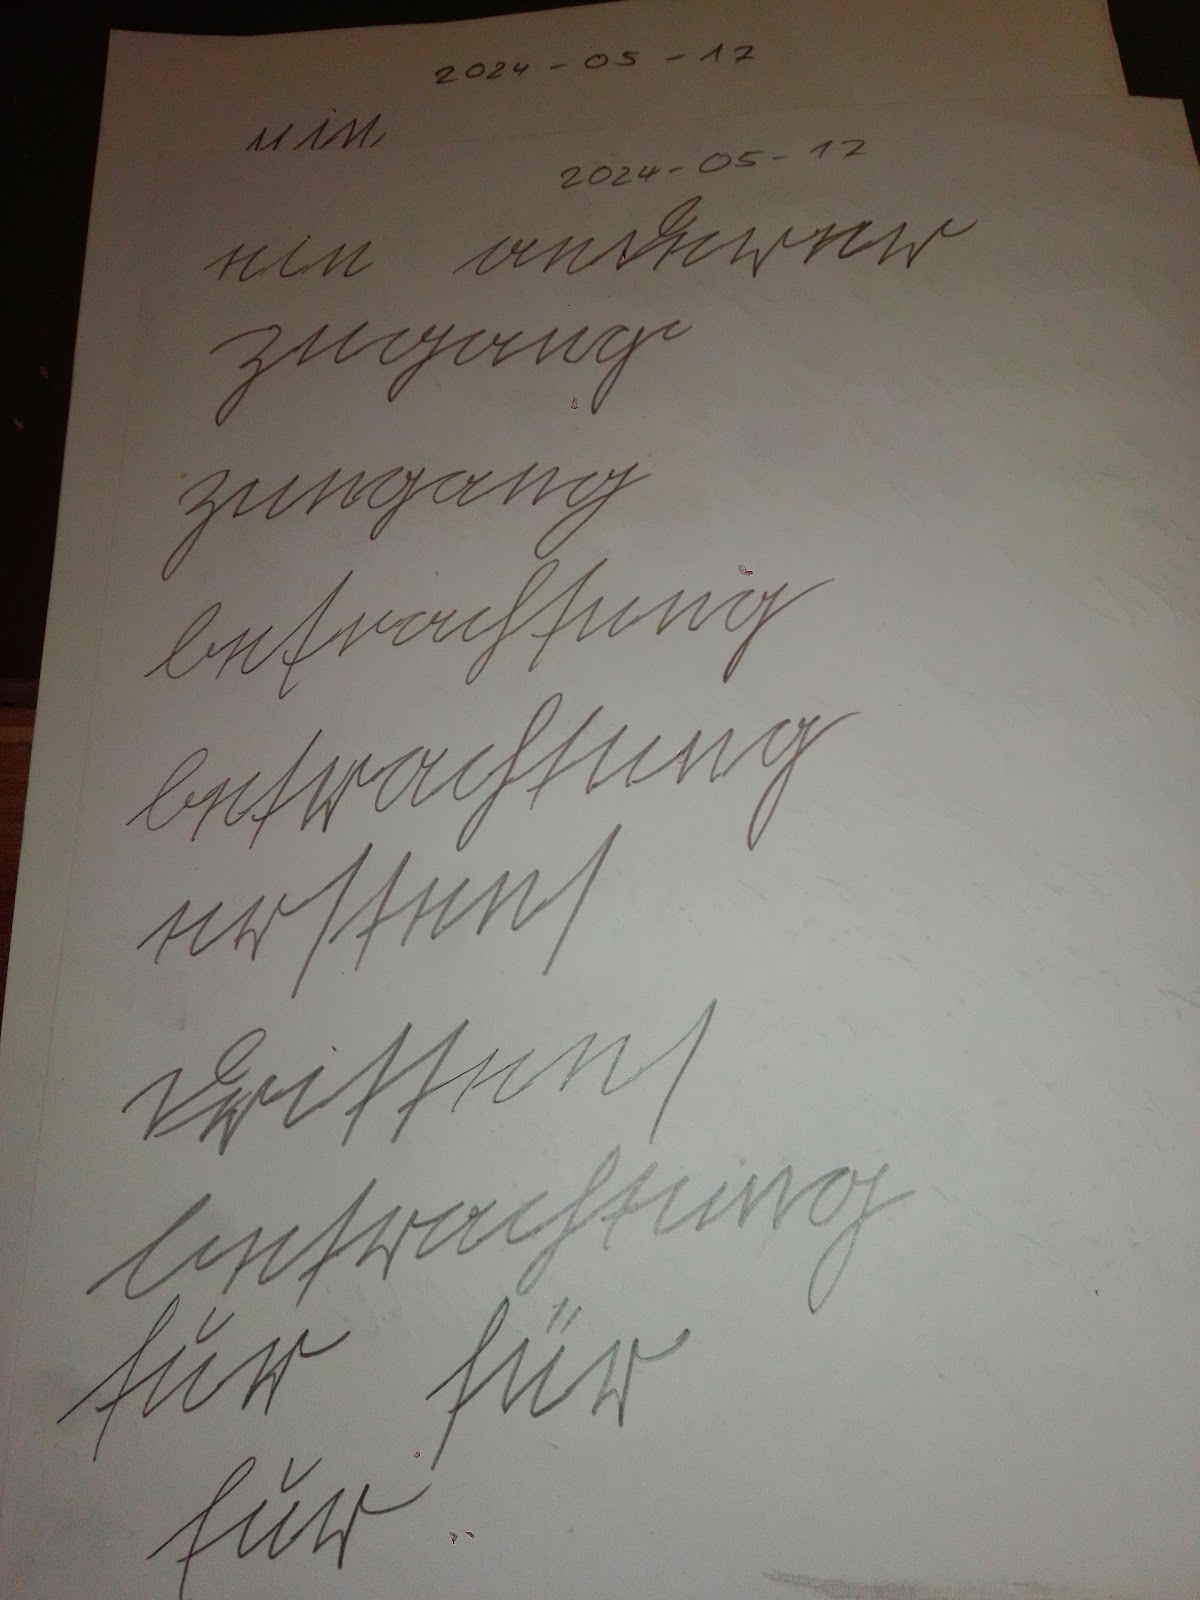 2024-05-17
ein
2024-05-17
ein anderer
zugang
zungang
betrachtung
betrachtung
erstens
drittens
betrachtung
für für
für